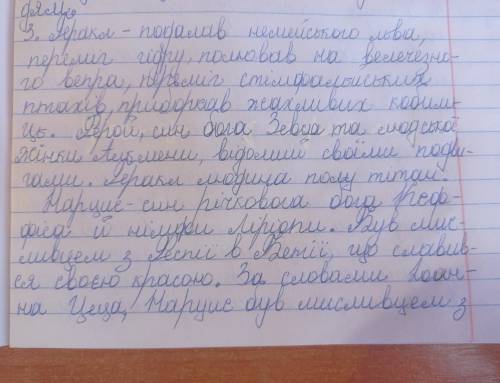 дям.
3. Геракл - подолав немейського льва,
переміг гідру, полював на велечезно-
го вепра, переміг стімфалыйських
птахів, приборкав жахливих кобили-
ць. Герой, син бога Зевса та людської
жінки Алкмени, відомий своїми подви-
гами. Геракл людина полу титан.
Нарцис - син річкового бога Кеф-
фіса й німфи Ліріопи. Був мис-
ливцем з Теспії в Беотії, що славив-
ся своєю красою. За словами Іоан-
на Цеца, Нарцис був мисливцем з